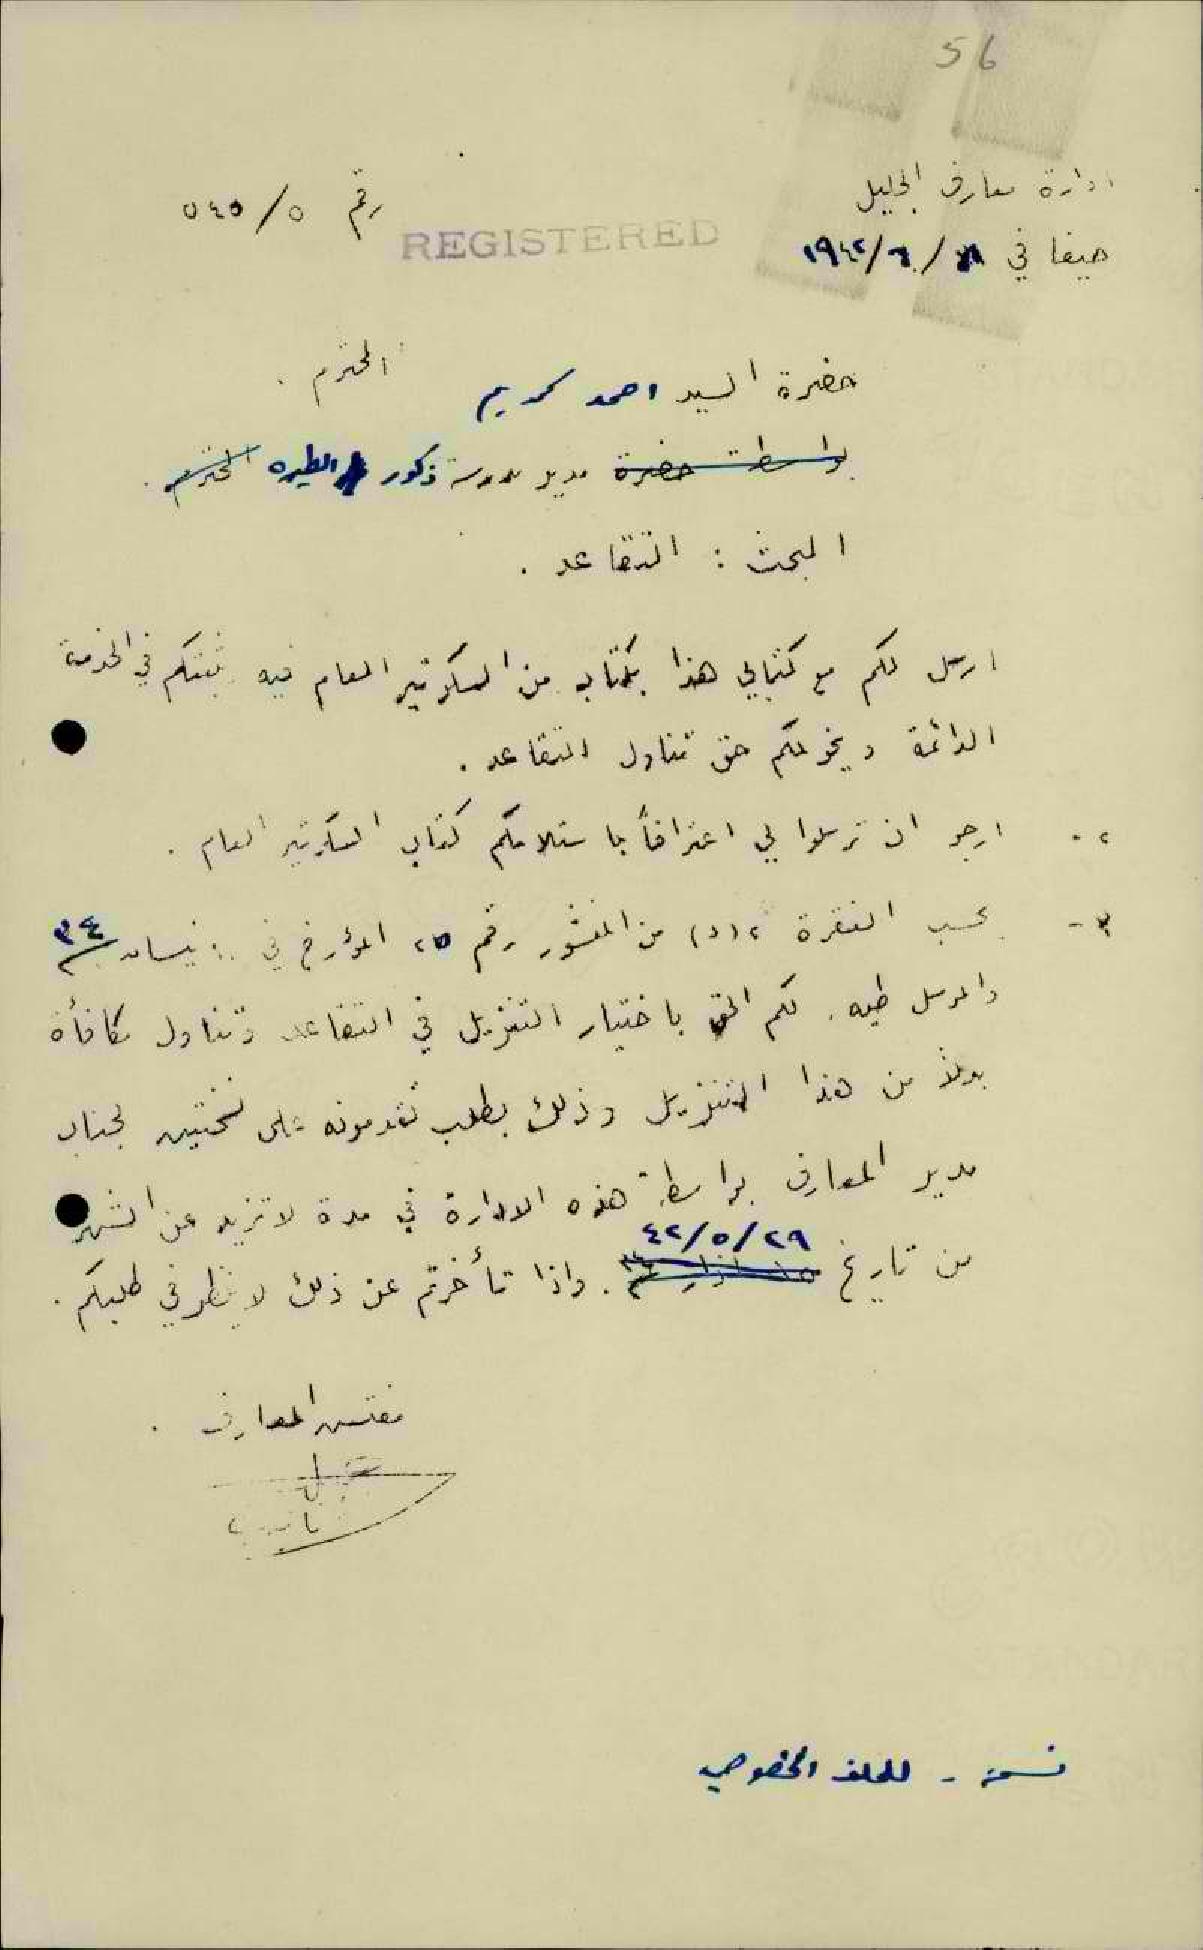 56
ادارة معارف الجليل
رقم ٥٤٥/٥
REGISTERED
حيفا في /٦/١٩٤٢
حضرة السيد احمد المحترم .
بواسطة حضرة مدير مدرسة ذكور الطيره المحترم .
المبحث : التقاعد .
ارسل لكم مع كتابي هذا بكتاب من السكرتير العام فيه يثبتكم في الخدمة
الدائمة ويخولكم حق تناول التقاعد .
٢- ارجو ان ترسلوا لي اعترافاً باستلامكم كتاب السكرتير العام .
٣- بحسب الفقرة ٢(د) من المنشور رقم ٢٥ المؤرخ في نيسان ٣٤
والمرسل طيه . لكم الحق باختيار التنزيل في التقاعد وتناول مكافأة
بدلاً من هذا التنزيل وذلك بطلب تقدمونه على نسختين لجناب
مدير المعارف بواسطة هذه الادارة في مدة لا تزيد عن الشهر
٤٢/٥/٢٩
من تاريخ . واذا تأخرتم عن ذلك لا ينظر في طلبكم .
مفتش المعارف .
نسخة - للملف الخصوصي